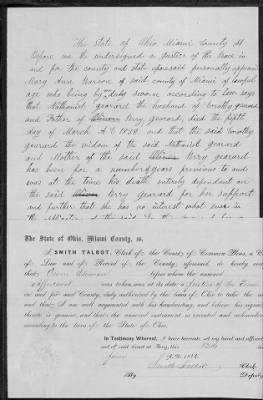 The State of Ohio Miami County SS
Before me the undersigned a Justice of the Peace in
and for the county and state aforesaid personally appeared
Mary Ann Pearson of said county of Miami of lawful
age who being by me duly sworn according to law says
that Nathaniel gearard the husband of Dorothy gearard
and Father of Perry gearard, died the fifth
day of March A D 1839 and that the said Dorothy
gearard the widow of the said Nathaniel gearard
and Mother of the said Perry gearard
has been for a number of years previous to and
was at the time his death entirely dependent on
the said Perry gearard for her support
and further that she has no interest what ever in
The State of Ohio, Miami County, ss.
I SMITH TALBOT, Clerk of the Court of Common Pleas, a C
of Law and of Record of the County aforesaid, do hereby
that before whom the annexed
was taken, was at its date a Justice of the Peace
in and for said County, duly authorized by the laws of Ohio to take the
and that I am well acquainted with his handwriting, and believe his
thereto is genuine, and that the annexed instrument is executed and
according to the laws of the State of Ohio.
In Testimony Whereof, I have hereunto set my hand and affixed
seal of said Court at Troy, this 12th
June A. D. 186
Smith Talbot Clerk
By Deputy